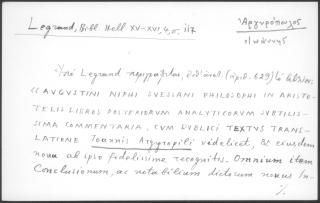 Legrand, Bibl. Hell. XV-XVI, 4, σ. 117
Ἀργυρόπουλος
Ἰωάννης
Ὑπὸ Legrand περιγράφεται, (ἀρ. 629) ἡ ἔκδοσις
«AUGUSTINI NIPHI SUESSANI PHILOSOPHI IN ARISTO-
TELIS LIBROS POSTERIORUM ANALYTICORUM SUBTILIS-
SIMA COMMENTARIA, CUM DUBLICI TEXTUS TRANS-
LATIONE Ioannis Argyropili videlicet, & eiusdem
noua ab ipso fidelissime recognitis. Omnium item
Conclusionum, ac notabilium dictorum nouus In-
%.